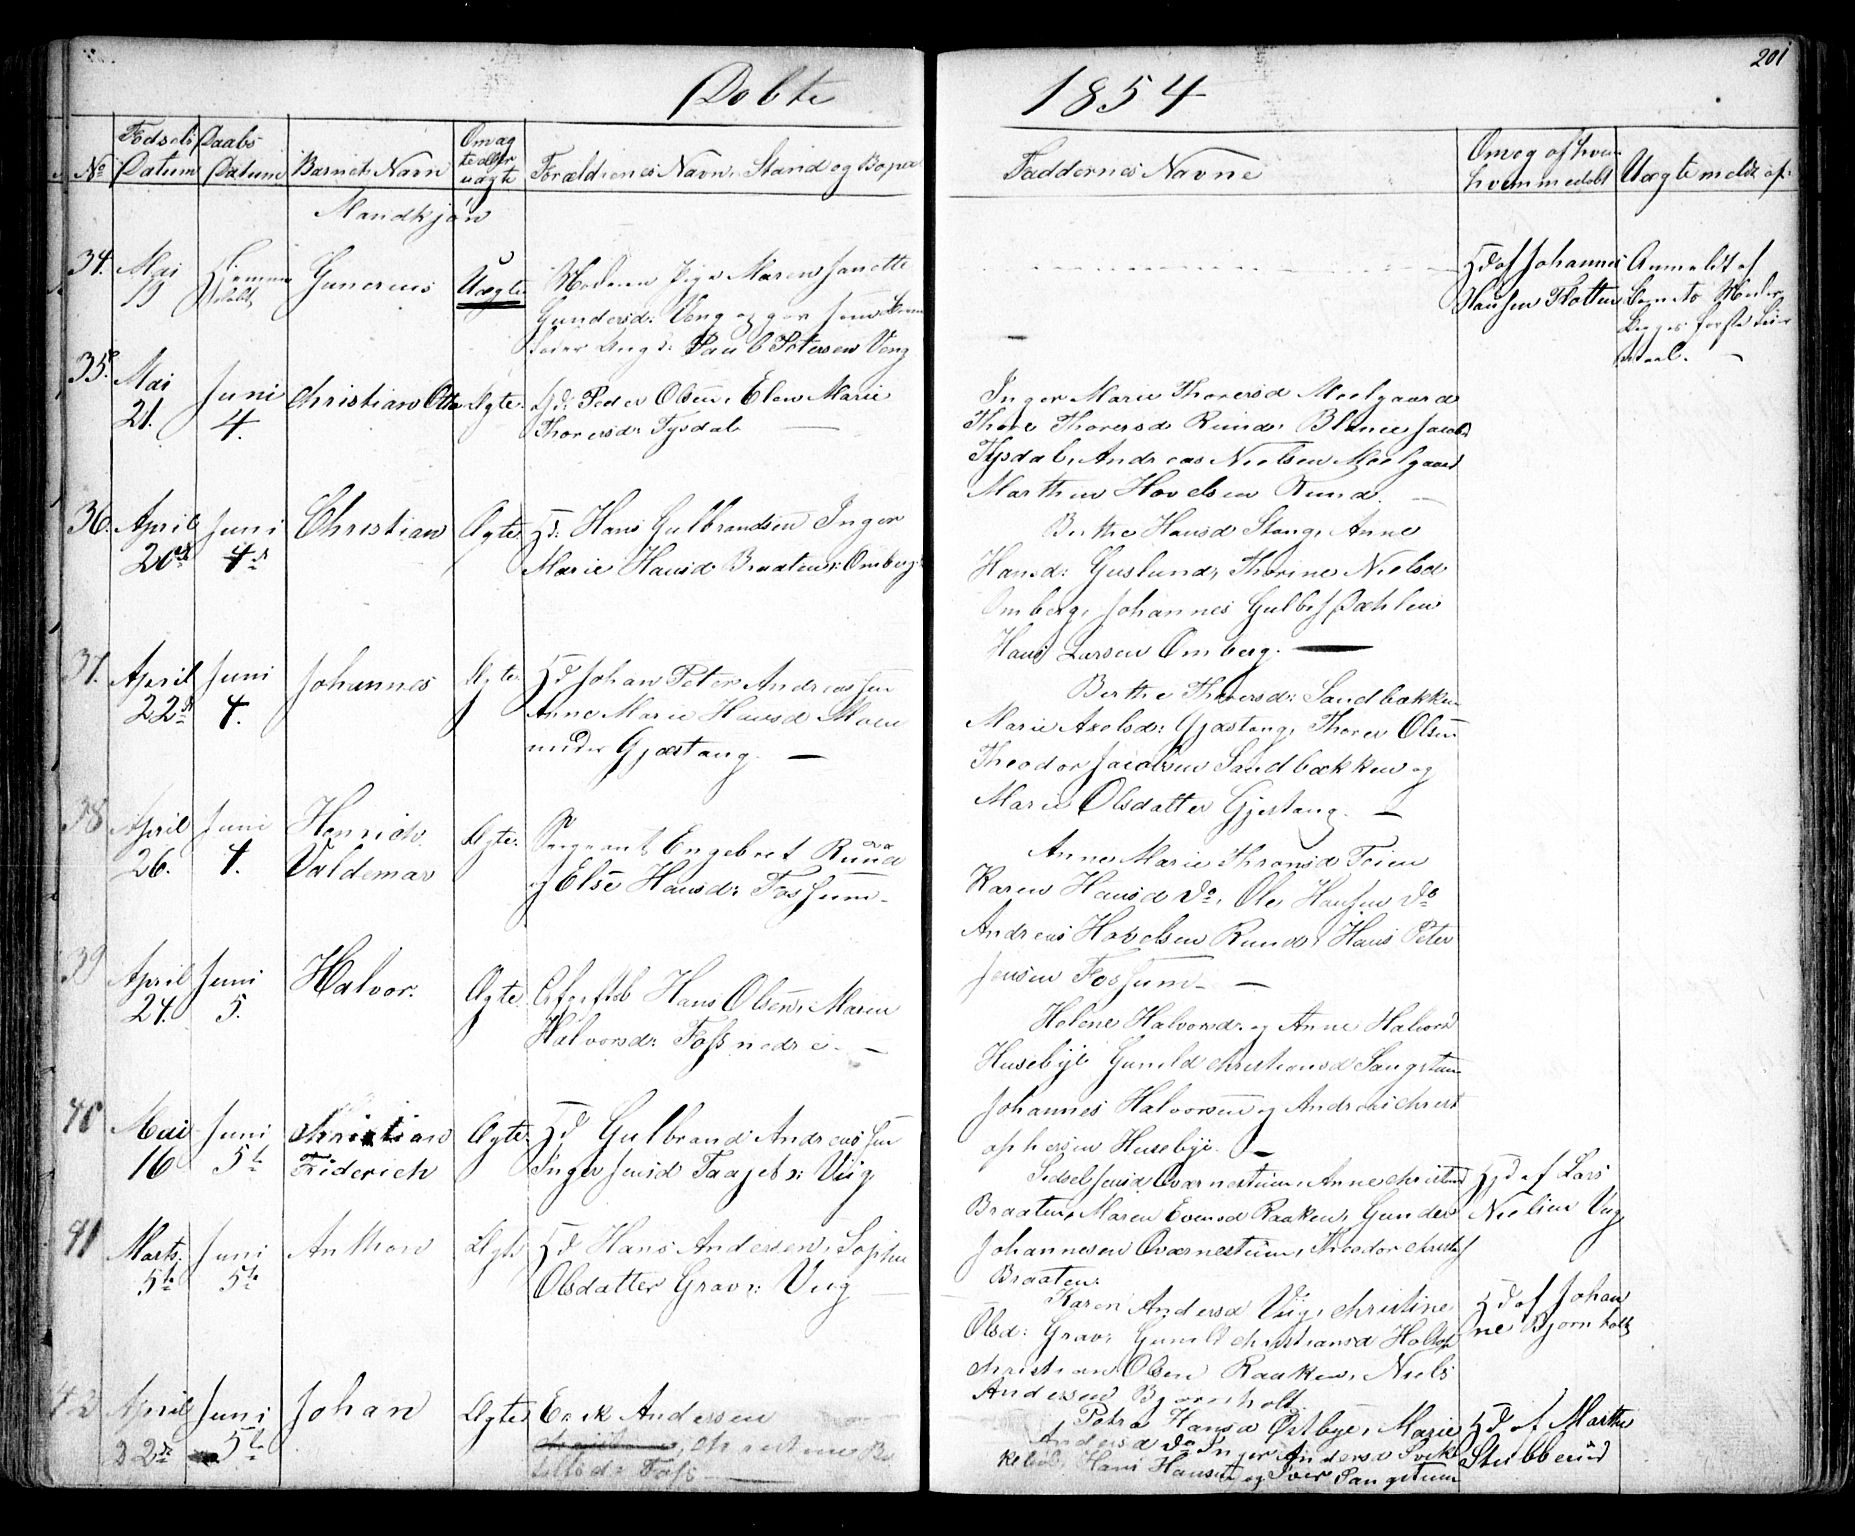 201
Døbte 1854
No Fødsels Datum Daabs Datum Barnets Navn Om ægte eller uægte Forældrenes Navn, Stand og Bopæ
Faddernes Navne
Om og af hvem hjemmedøbt
Uægte meldt af:
Mandkjøn
34. Mai 19 Hjemme døbt Gunerius Uægte Moderen Pige Maren Janette
Gundersd: Veng og
Paul Petersen Veng
Hd af Johannes
Hansen Flatten
Anmeldt af
Begges første Leier
maal. —
35. Mai 21. Juni 4. Christian Otto Ægte Hd: Peder Olsen, Elen Marie
Thoresd: Tysdal —
Inger Marie Thoresd Moelgaard
Thore Thoresd Rund,
Tysdal, Andreas Nielsen Moelgaard
Marthin Hovelsen Rund. —
36. April 20de Juni 4de Christian Ægte Hd: Hans Gulbrandsen Inger
Marie Hansd Braaten: Omberg
Berthe Hansd Stang, Anne
Hansd: Guslund, Thorine Nielsd
Omberg, Johannes Gulbs Dæhlen
Hans Larsen Omberg. —
37. April 22de Juni 4. Johannes Ægte Hd Johan Peter Andreassen
Anne Marie Hansd Moen
under Gjæstang. —
Berthe Thoresd: Sandbækken
Marie Axelsd: Gjæstang, Thorer Olsen
Theodor Jacobsen Sandbækken og
Marie Olsdatter Gjestang. —
38 April 26. Juni 4. Henrich Valdemar Ægte. Sergeant Engebret Rund
og Else Hansd: Fossum —
Anne Marie Thronsd Teien
Karen Hansd Do, Ole Hansen Do
Andreas Hovelsen Rund, Hans Peter
Jensen Fossum. —
39 April 24. Juni 5. Halvor. Ægte. Hans Olsen, Maren
Halvorsd: Foss nedre. —
Helene Halvorsd: og Anne Halvorsd
Husebye Gunild Christiansd Sangstuen
Johannes Halvorsen og Andreas Christ
ophersen Husebye. —
40 Mai 16 Juni 5te Christian Friderich Ægte. Hd Gulbrand Andreassen
Inger Jensd Taajet u: Viig
Sidsel Jensd Qværnestuen, Anne Christensd
Braaten, Maren Evensd Raaken, Gunder
Johannesen Qværnestuen, Theodor Christ
Braaten:
Hd af Lars
Nielsen Viig
41 Marts 5te Juni 5te Anthon Ægte Hd Hans Andersen, Sophie
Olsdatter Grav u: Viig
Karen Andersd Viig, Christine
Olsd: Grav: Gunild Christiansd Holtop
Christian Olsen Raaken, Niels
Andersen Bjørnholt
Hd af Johan
ne Bjørnholt
42 April 22de Juni 5te Johan Ægte Erik Andersen
Christine
Foss —
Petra Hansd Østbye, Marie
Andersd Do Inger Andersd
Hans Hansen og Iver Sangstuen
Hd af Marthe
Stubberud